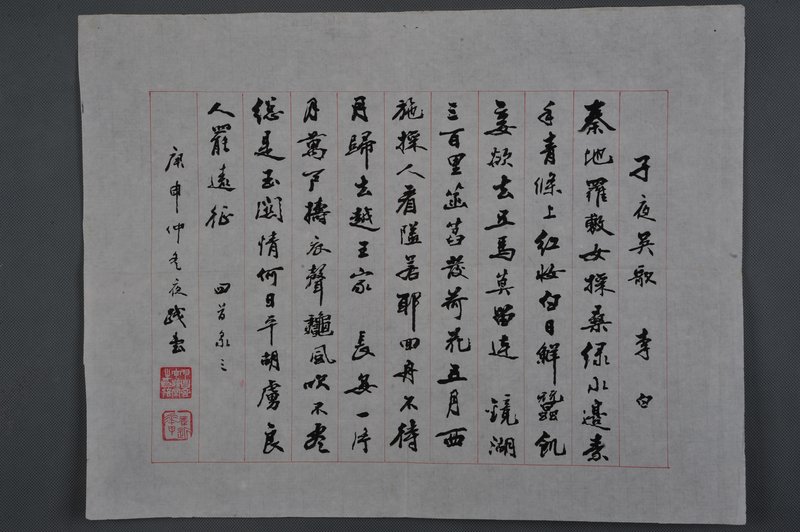 子夜吳歌 李白
秦地羅敷女採桑綠水邊素
手青條上紅妝白日鮮蠶飢
妾欲去五馬莫留連 鏡湖
三百里菡萏發荷花五月西
施採人看隘若耶回舟不待
月歸去越王家 長安一片
月萬戶擣衣聲秋風吹不盡
總是玉關情何日平胡虜良
人罷遠征 四首录三
庚申仲冬夜